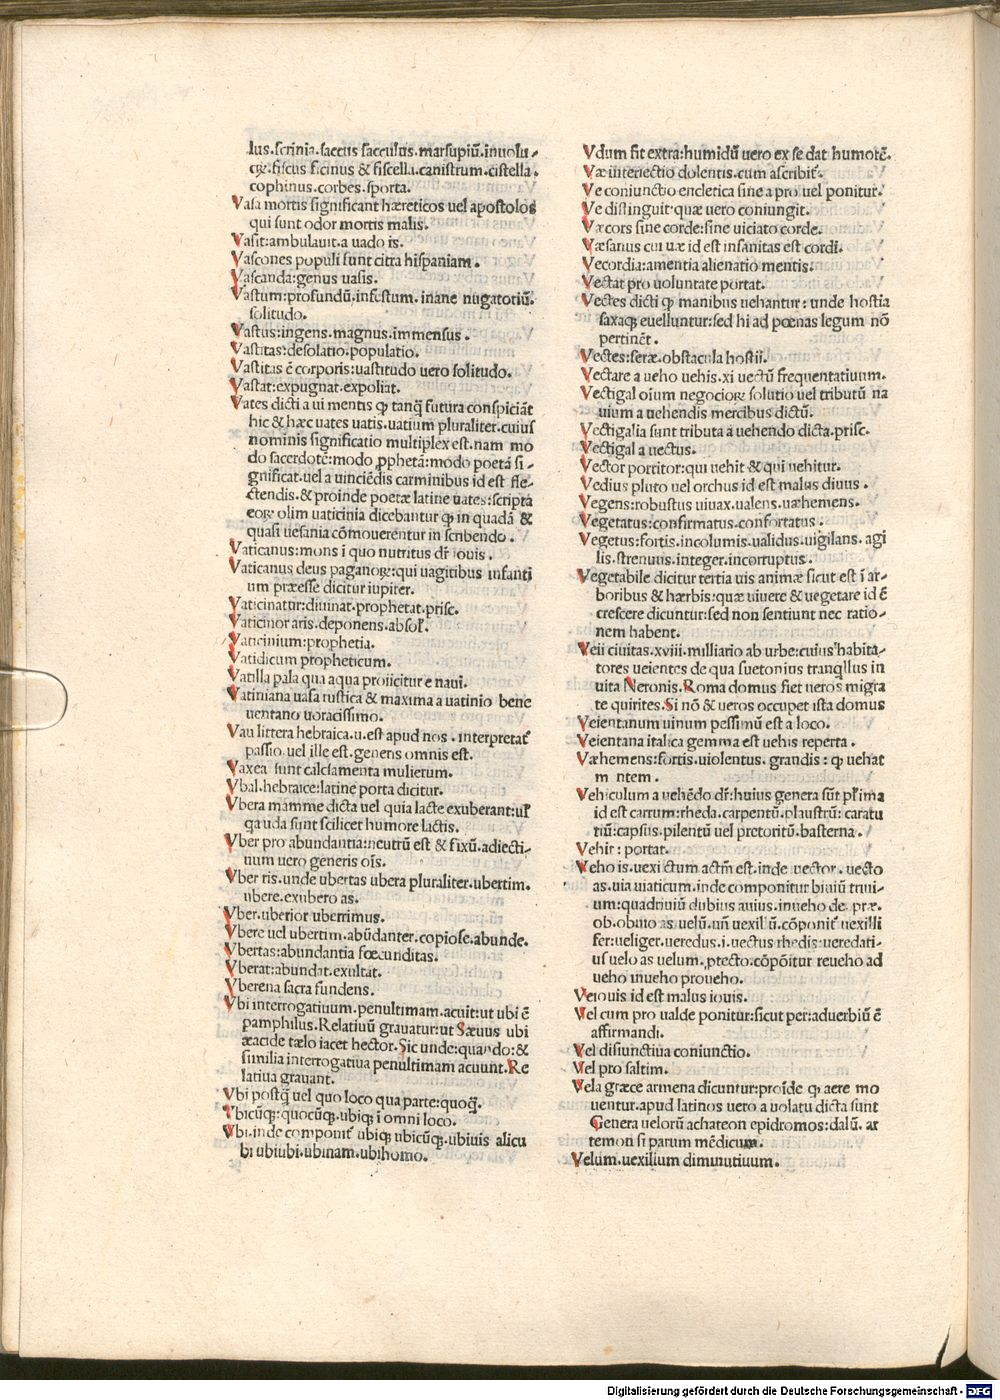 lus.scrinia.saccus sacculus.marsupiū.inuolu-
cꝝ.fiscus ficinus & fiscella.canistrum.cistella.
cophinus.corbes.sporta.
Vasa mortis significant hæreticos uel apostolos
qui sunt odor mortis malis.
Vasit:ambulauit.a uado is.
Vascones populi sunt citra hispaniam.
Vascanda:genus uasis.
Vastum:profundū.infestum.inane nugatoriū.
solitudo.
Vastus:ingens.magnus.immensus.
Vastitas:desolatio.populatio.
Vastitas ē corporis:uastitudo uero solitudo.
Vastat:expugnat.expoliat.
Vates dicti a ui mentis ꝙ tanq̄ futura conspiciāt
hic & hæc uates uatis.uatium pluraliter.cuius
nominis significatio multiplex est.nam mo
do sacerdotē:modo ꝓphetā:modo poetā si-
gnificat.uel a uinciēdis carminibus id est fle-
ctendis.& proinde poetæ latine uates:scripta
eoꝝ olim uaticinia dicebantur ꝙ in quadā &
quasi uesania cōmouerentur in scribendo.
Vaticanus:mons ī quo nutritus dr̄ iouis.
Vaticanus deus paganoꝝ:qui uagitibus infanti
um præesse dicitur iupiter.
Vaticinatur:diuinat.prophetat.prisc.
Vaticinor aris.deponens.absol̄.
Vaticinium:prophetia.
Vatidicum propheticum.
Vatilla pala qua aqua proiicitur e naui.
Vatiniana uasa rustica & maxima a uatinio bene
uentano uoracissimo.
Vau littera hebraica.u.est apud nos.interpretat̄
passio.uel ille est.genens omnis est.
Vaxea sunt calciamenta mulierum.
Vbal.hebraice:latine porta dicitur.
Vbera mamme dicta uel quia lacte exuberant:ul̄
qa uda sunt scilicet humore lactis.
Vber pro abundantia:neutrū est & fixū.adiecti-
uum uero generis oīs.
Vber ris.unde ubertas ubera pluraliter.ubertim.
ubere.exubero as.
Vber.uberior uberrimus.
Vbere uel ubertim.abūdanter.copiose.abunde.
Vbertas:abundantia fœcunditas.
Vberat:abundat.exultat.
Vberena sacra fundens.
Vbi interrogatiuum.penultimam.acuit:ut ubi ē
pamphilus.Relatiuū grauatur:ut Sæuus ubi
æacide tælo iacet hector.Sic unde:quando:&
similia interrogatiua penultimam acuunt.Re
latiua grauant.
Vbi postq̄ uel quo loco qua parte:quoq̄.
Vbicūq̄:quocūq̄.ubiq̄ ī omni loco.
Vbi.inde componit̄ ubiq̄ ubicūq̄.ubiuis alicu
bi ubiubi.ubinam.ubihomo.
Vdum fit extra:humidū uero ex se dat humorē.
Væ interiectio dolentis.cum ascribit̄.
Ve coniunctio encletica sine a pro uel ponitur.
Ve distinguit quæ uero coniungit.
Væcors sine corde:siue uiciato corde.
Væsanus cui uæ id est insanitas est cordi.
Vecordia:amentia alienatio mentis.
Vectat pro uoluntate portat.
Vectes dicti ꝙ manibus uehantur: unde hostia
saxaq̄ euelluntur:sed hi ad pœnas legum nō
pertinēt.
Vectes:seræ.obstacula hostii.
Vectare a ueho uehis.xi uectū frequentatiuum.
Vectigal oium negocioꝝ solutio uel tributū na
uium a uehendis mercibus dictū.
Vectigalia sunt tributa a uehendo dicta.prisc.
Vectigal a uectus.
Vector portitor:qui uehit & qui uehitur.
Vedius pluto uel orchus id est malus diuus.
Vegens:robustus uiuax.ualens.uæhemens.
Vegetatus:confirmatus.confortatus.
Vegetus:fortis.incolumis.ualidus.uigilans.agi
lis.strenuus.integer.incorruptus.
Vegetabile dicitur tertia uis animæ sicut est ī ar-
boribus & hærbis:quæ uiuere & uegetare id ē
crescere dicuntur:sed non sentiunt nec ratio-
nem habent.
Veii ciuitas.xviii.milliario ab urbe:cuius habita-
tores ueientes de qua suetonius tranqllus in
uita Neronis.Roma domus fiet ueros migra
te quirites.Si nō & ueros occupet ista domus
Veientanum uinum pessimū est a loco.
Veientana italica gemma est uehis reperta.
Væhemens:fortis.uiolentus.grandis: ꝙ uehat
m ntem.
Vehiculum a uehēdo dr̄:huius genera sūt pl̄ima
id est carrum:rheda.carpentū.plaustrū:caratu
tiū:capsus.pilentū uel pretoritū.basterna.
Vehit: portat.
Veho is.uexi ctum actm̄ est.inde uector.uecto
as.uia uiaticum.inde componitur biuiū triui-
um:quadriuiū dubius auius.inueho de.præ.
ob.obuio as.uelū.uñ uexil ū.cōponit̄ uexilli
fer:ueliger.ueredus.i.uectus rhedis:ueredati-
us uelo as uelum.ꝓtecto.cōpōitur reueho ad
ueho inueho proueho.
Veiouis id est malus iouis.
Vel cum pro ualde ponitur:sicut per:aduerbiū ē
affirmandi.
Vel disiunctiua coniunctio.
Vel pro saltim.
Vela græce armena dicuntur:proīde ꝙ aere mo
uentur.apud latinos uero a uolatu dicta sunt
Genera uelorū achateon epidromos:dalū.ar
temon si parum mēdicum.
Velum.uexilium diminutiuum.
Digitalisierung gefördert durch die Deutsche Forschungsgemeinschaft - DFG